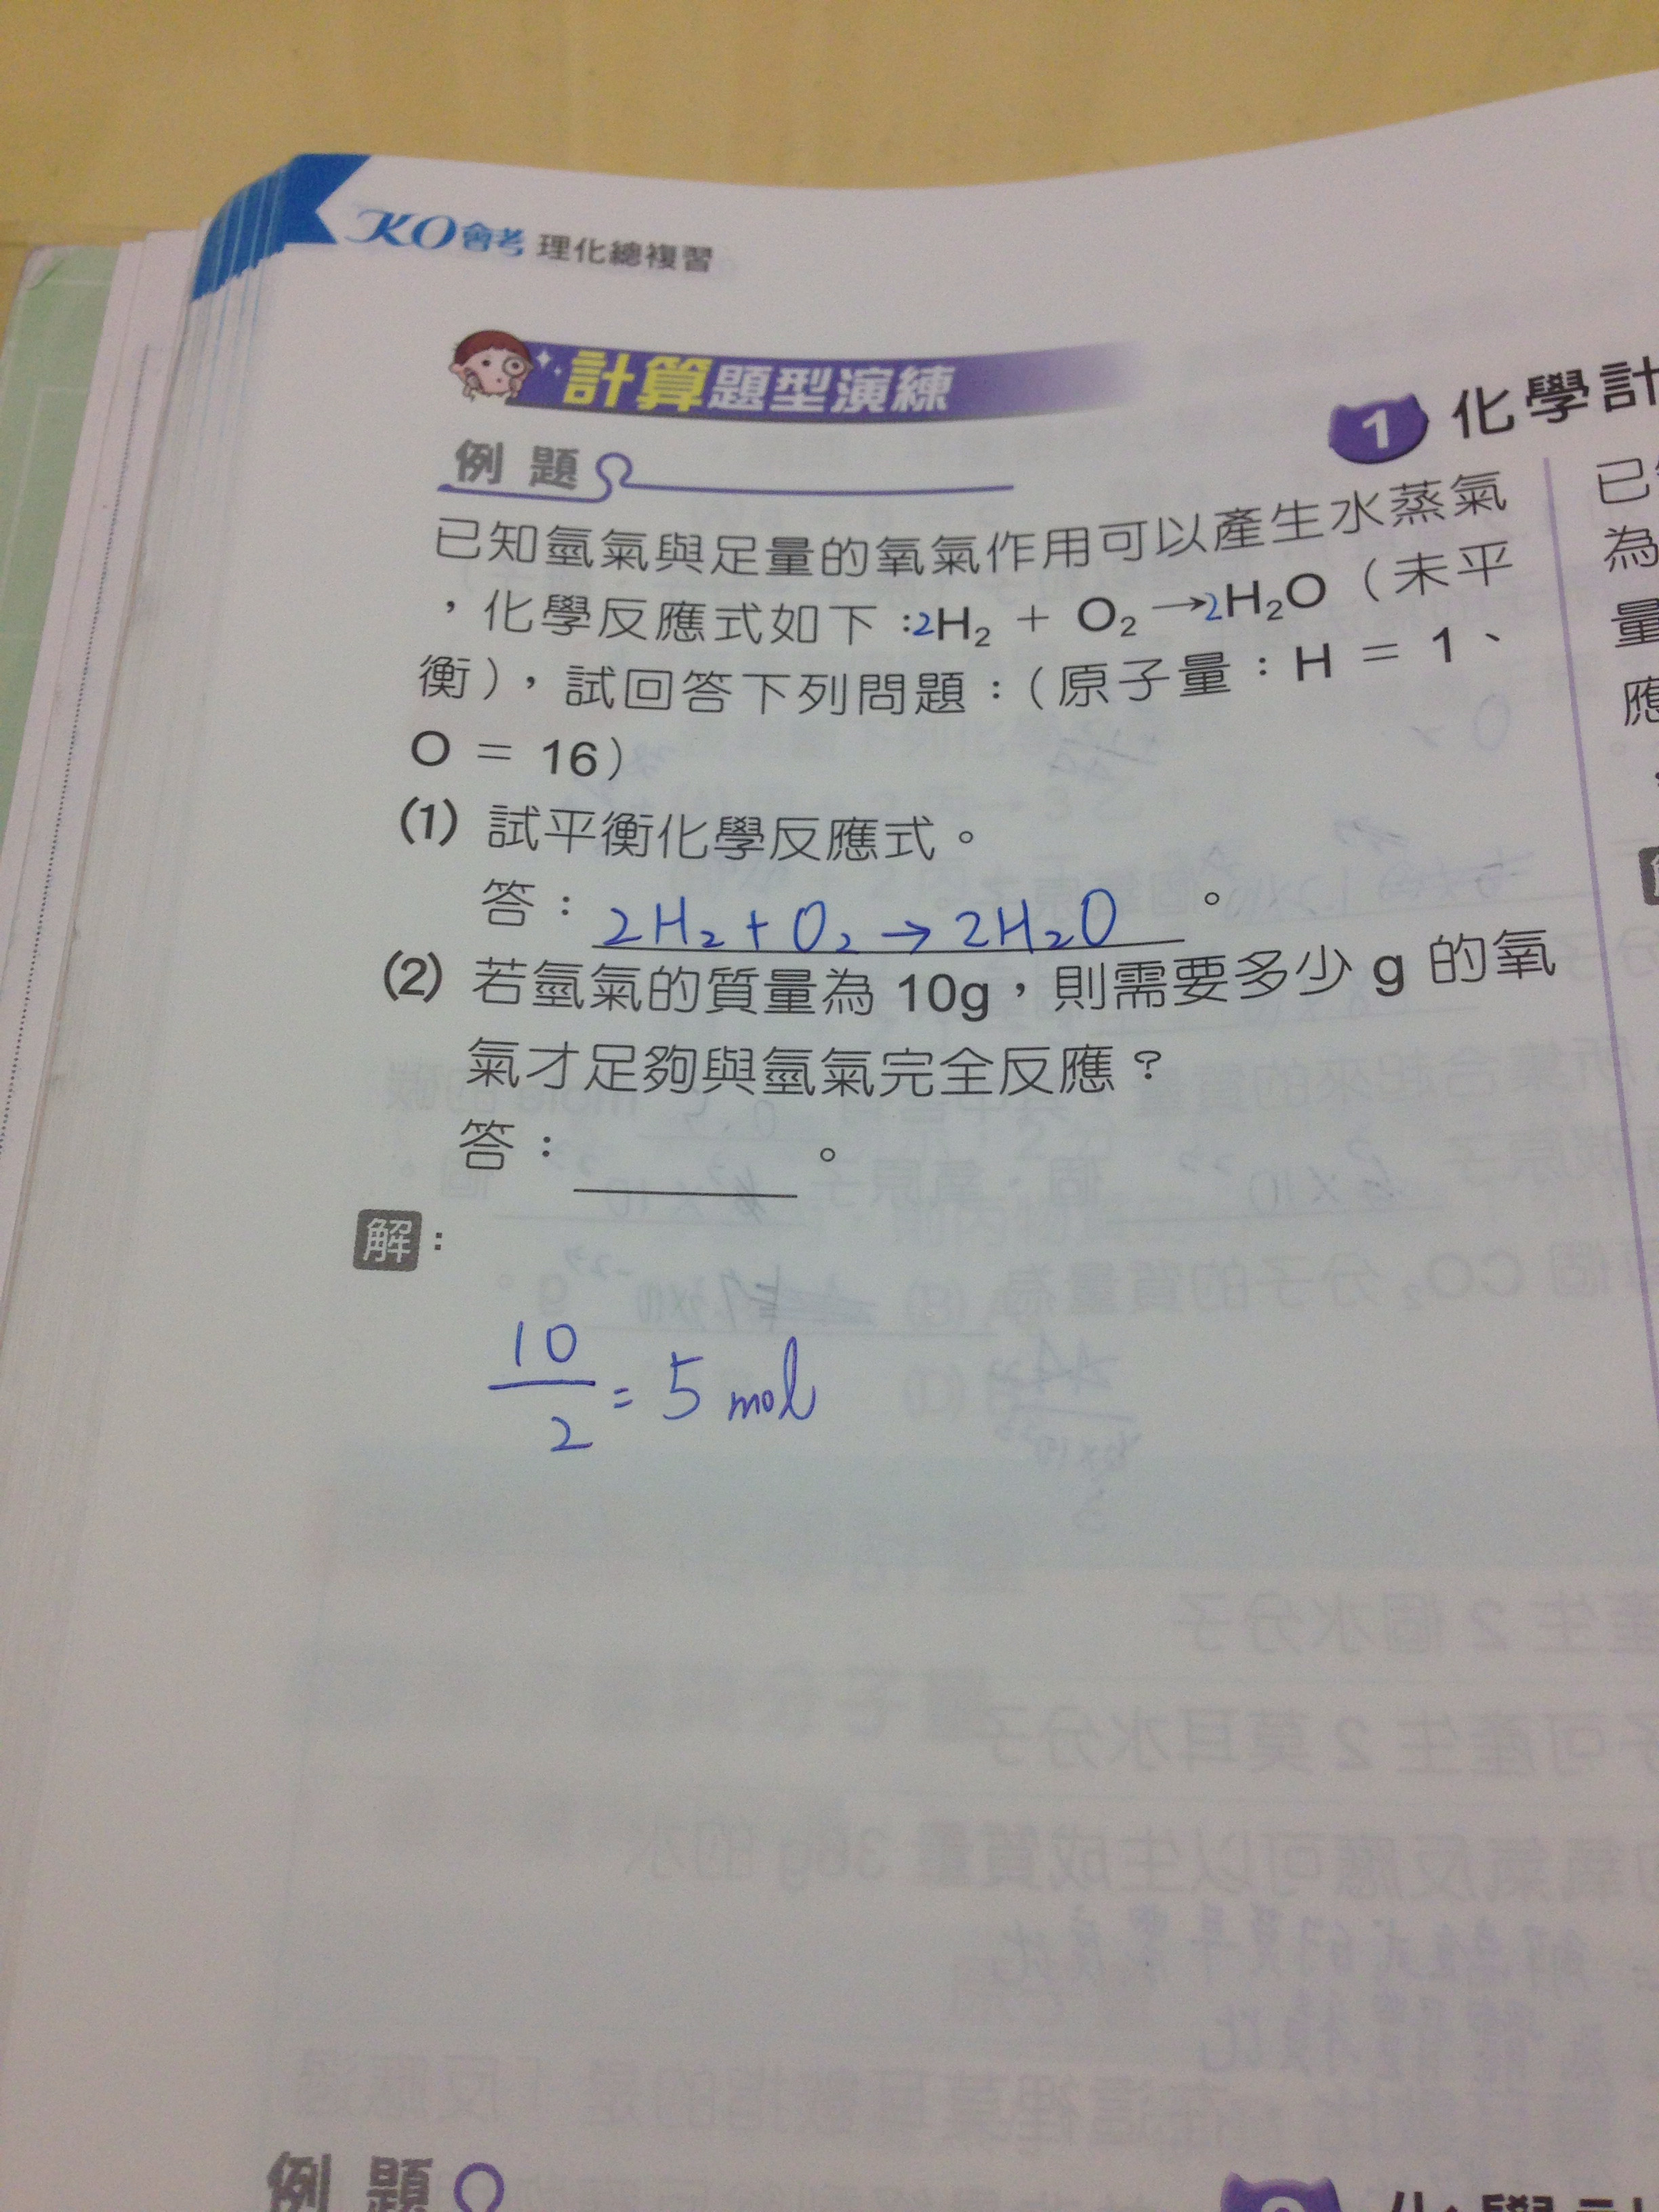 KO會考 理化總複習
計算題型演練
1 化學計
例題
已知氫氣與足量的氧氣作用可以產生水蒸氣
，化學反應式如下：2H₂ + O₂ →2H₂O（未平
衡），試回答下列問題：（原子量：H = 1、
O = 16）
(1) 試平衡化學反應式。
答：2H₂+O₂→2H₂O。
(2) 若氫氣的質量為 10g，則需要多少 g 的氧
氣才足夠與氫氣完全反應？
答：　　　。
解：
10/2 = 5 mol
已
為
量
應
例題